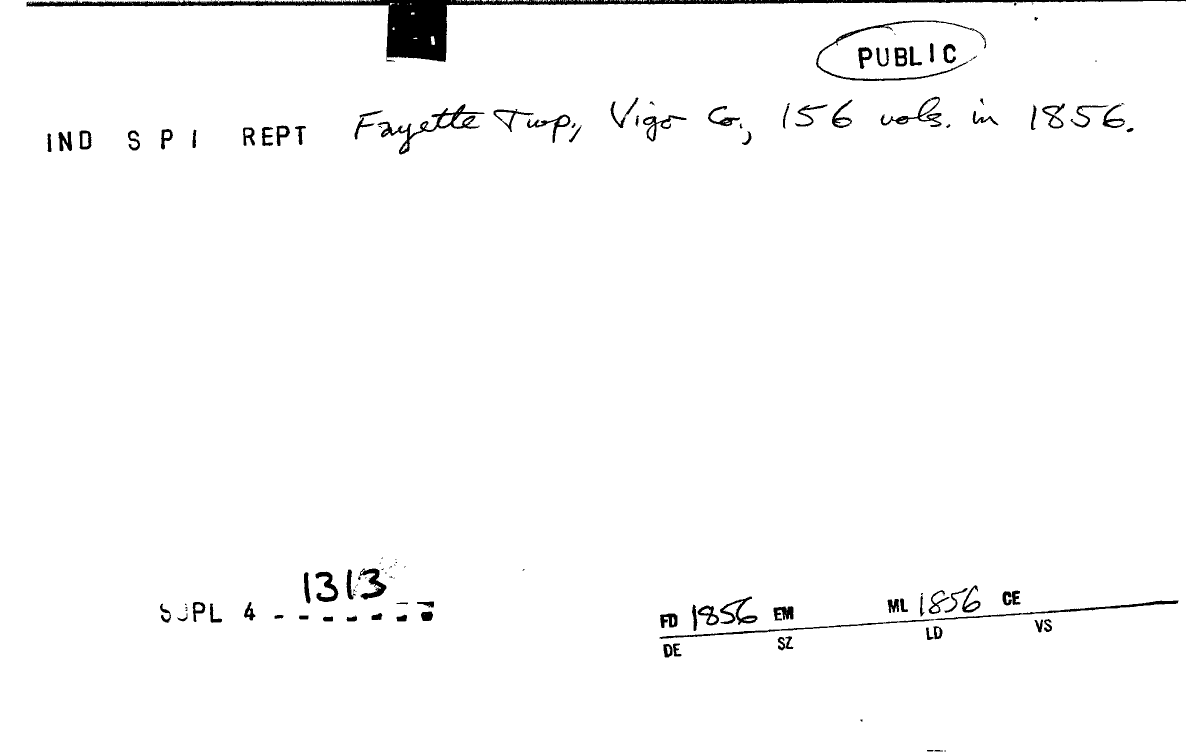 PUBLIC
IND S P I REPT Fayette Twp., Vigo Co., 156 vols. in 1856.
1313
SUPL 4 - - - - - - -
FD 1856 EM ML 1856 CE
DE SZ LD VS